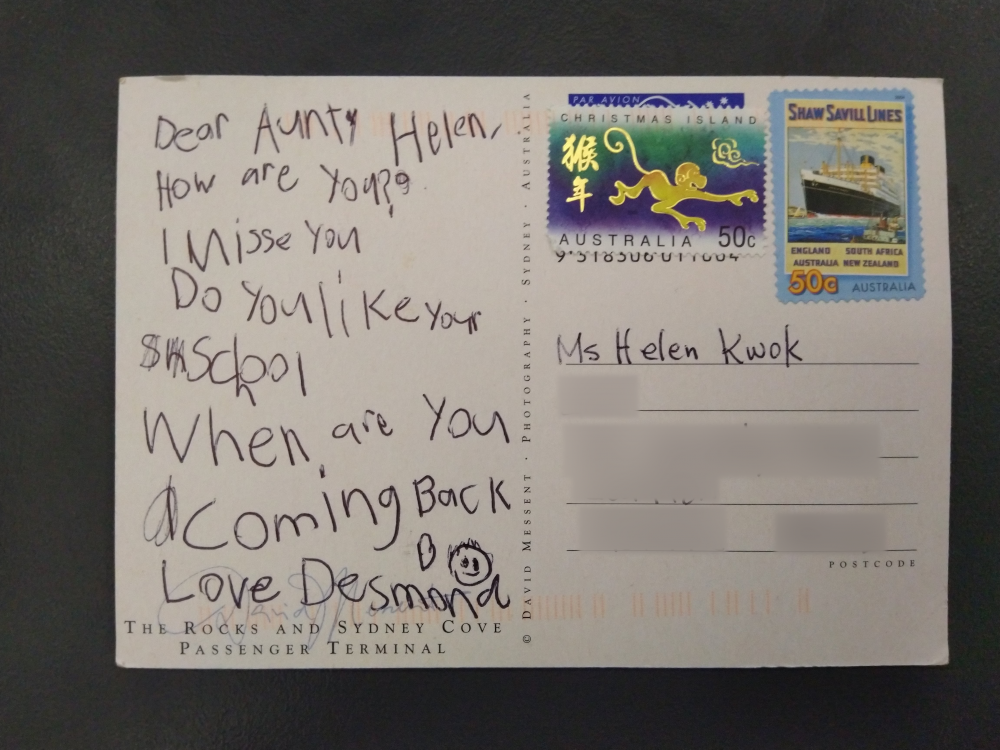 Dear Aunty Helen,
How are you?
I Misse You
Do You like Your
School
When are You
Coming Back
Love Desmond
THE ROCKS AND SYDNEY COVE
PASSENGER TERMINAL
© DAVID MESSENT · PHOTOGRAPHY · SYDNEY · AUSTRALIA
PAR AVION
CHRISTMAS ISLAND
猴
年
AUSTRALIA 50c
SHAW SAVILL LINES
ENGLAND SOUTH AFRICA
AUSTRALIA NEW ZEALAND
50c AUSTRALIA
Ms Helen Kwok
POSTCODE